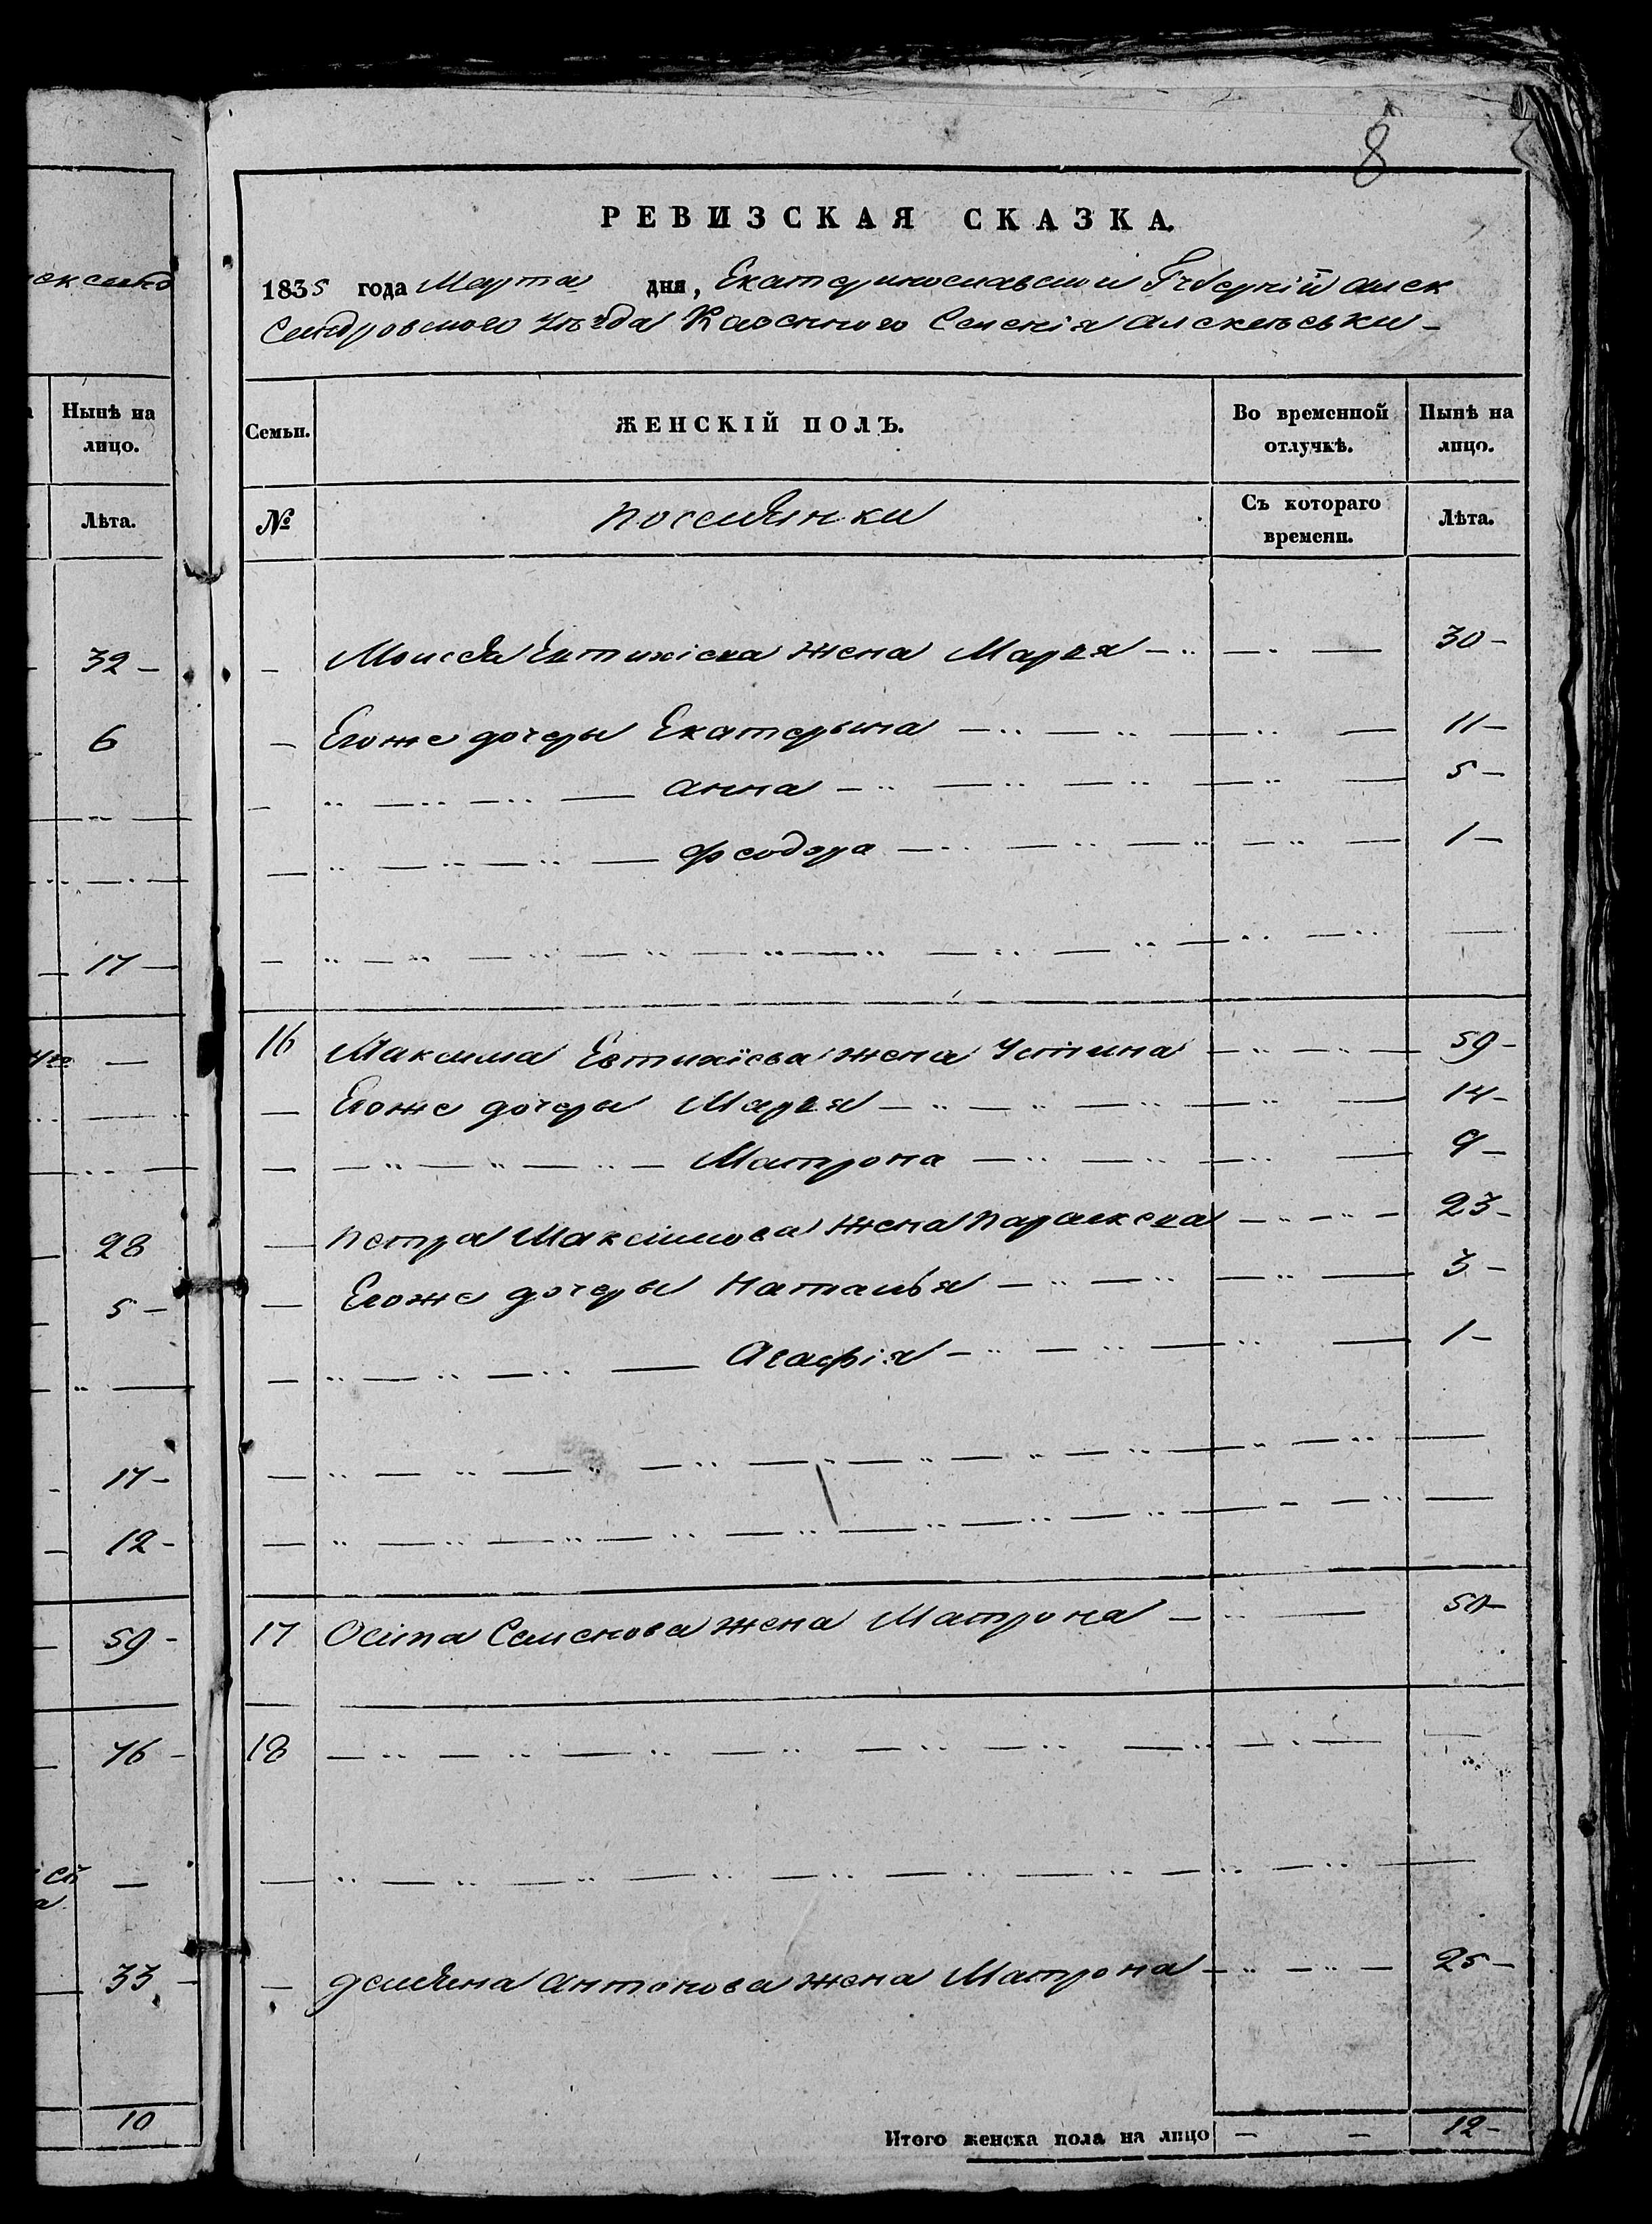 8
РЕВИЗСКАЯ СКАЗКА.
1835 года Марта дня, Екатеринославской Губерніи Алек
сандровского Уѣзда Казенного Селенія Алексѣевки
Семьи. ЖЕНСКІЙ ПОЛЪ. Во временной отлучкѣ. Нынѣ на лицо.
№ поселянки Съ котораго времени. Лѣта.
Моисея Евтихіева жена Марея 30
Егоже дочеры Екатерына 11
Анна 5
Феодора 1
16 Максима Евтихіева жена Устина 59
Егоже дочеры Марея 14
Матрона 9
Петра Максімова жена Параскева 23
Егоже дочеры Наталья 3
Агафія 1
17 Осіпа Семенова жена Матрона 50
18
Демяна Антонова жена Матрона 25
Итого женска пола на лицо 12
Нынѣ на лицо.
Лѣта.
32
6
17
28
5
17
12
59
76
33
10